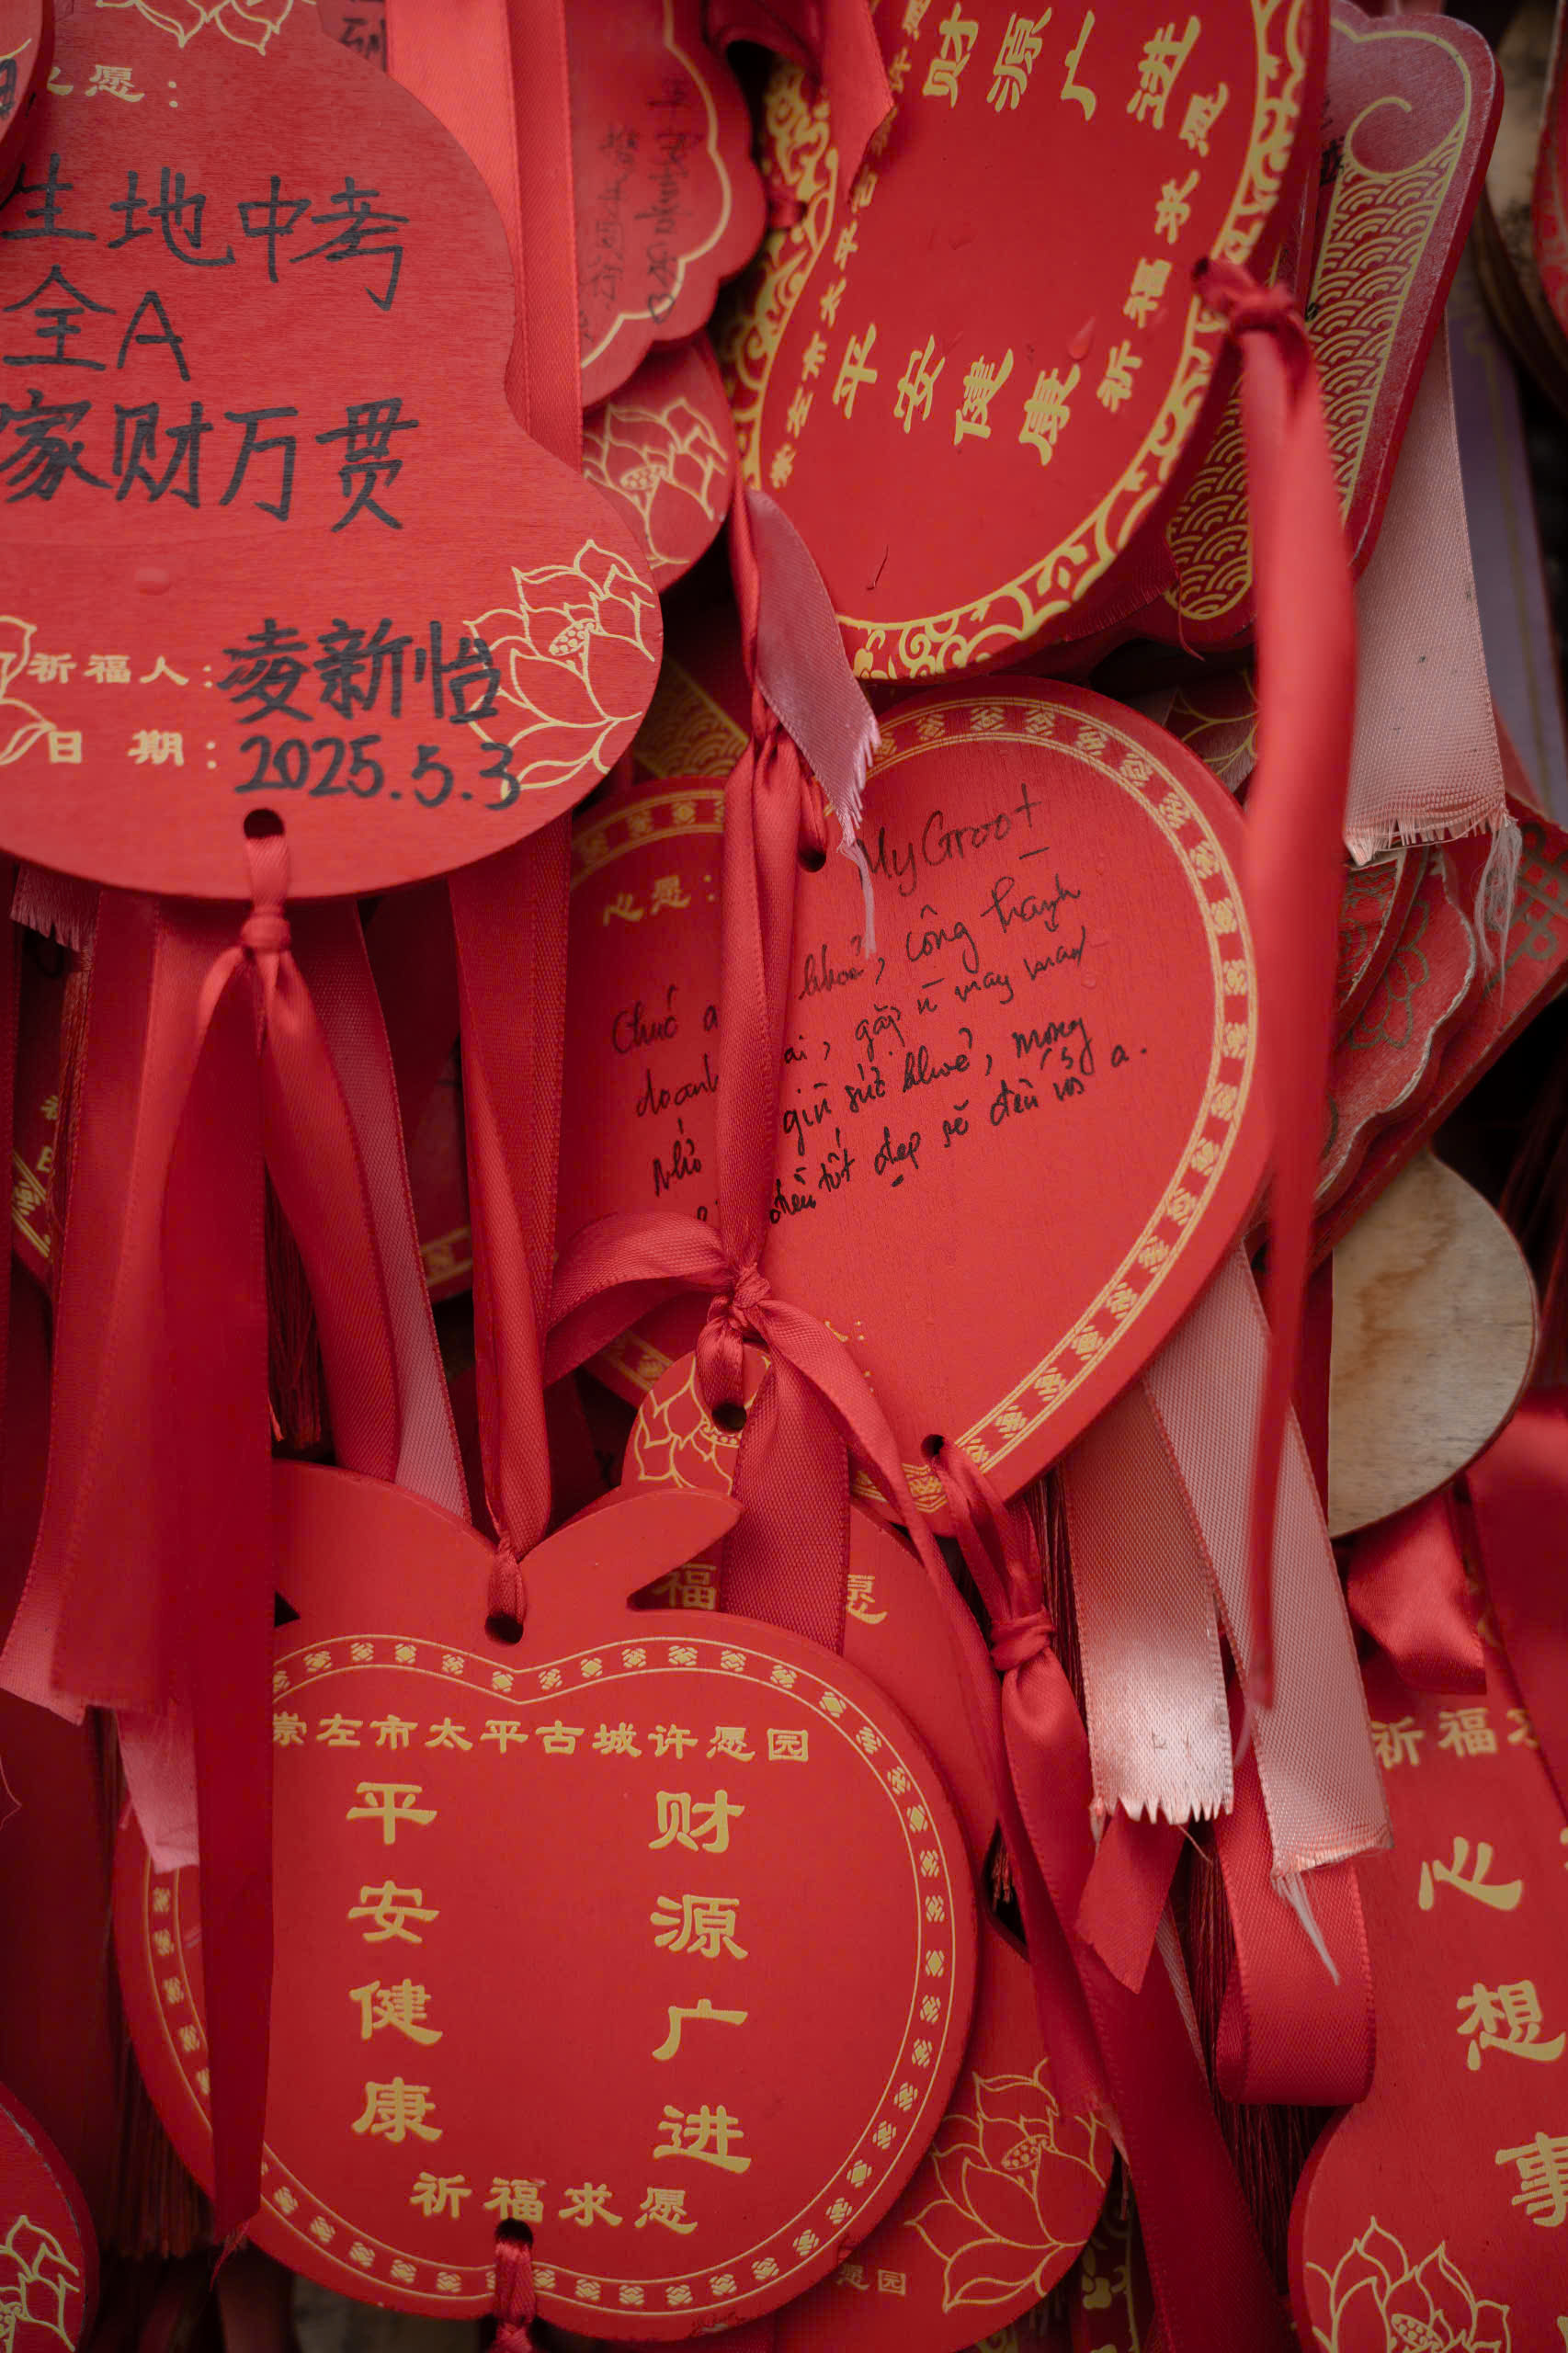 愿：
生地中考
全A
家财万贯
祈福人：凌新怡
日期：2025.5.3
财源广进
平安健康
祈福求愿
心愿：
My Groot
Chúc a khoẻ, công thành
doanh ai, gặp n` may mắn
Nhớ giữ sức khoẻ, mong
điều tốt đẹp sẽ đến với a.
福 愿
崇左市太平古城许愿园
平安健康
财源广进
祈福求愿
愿园
祈福求
心想事